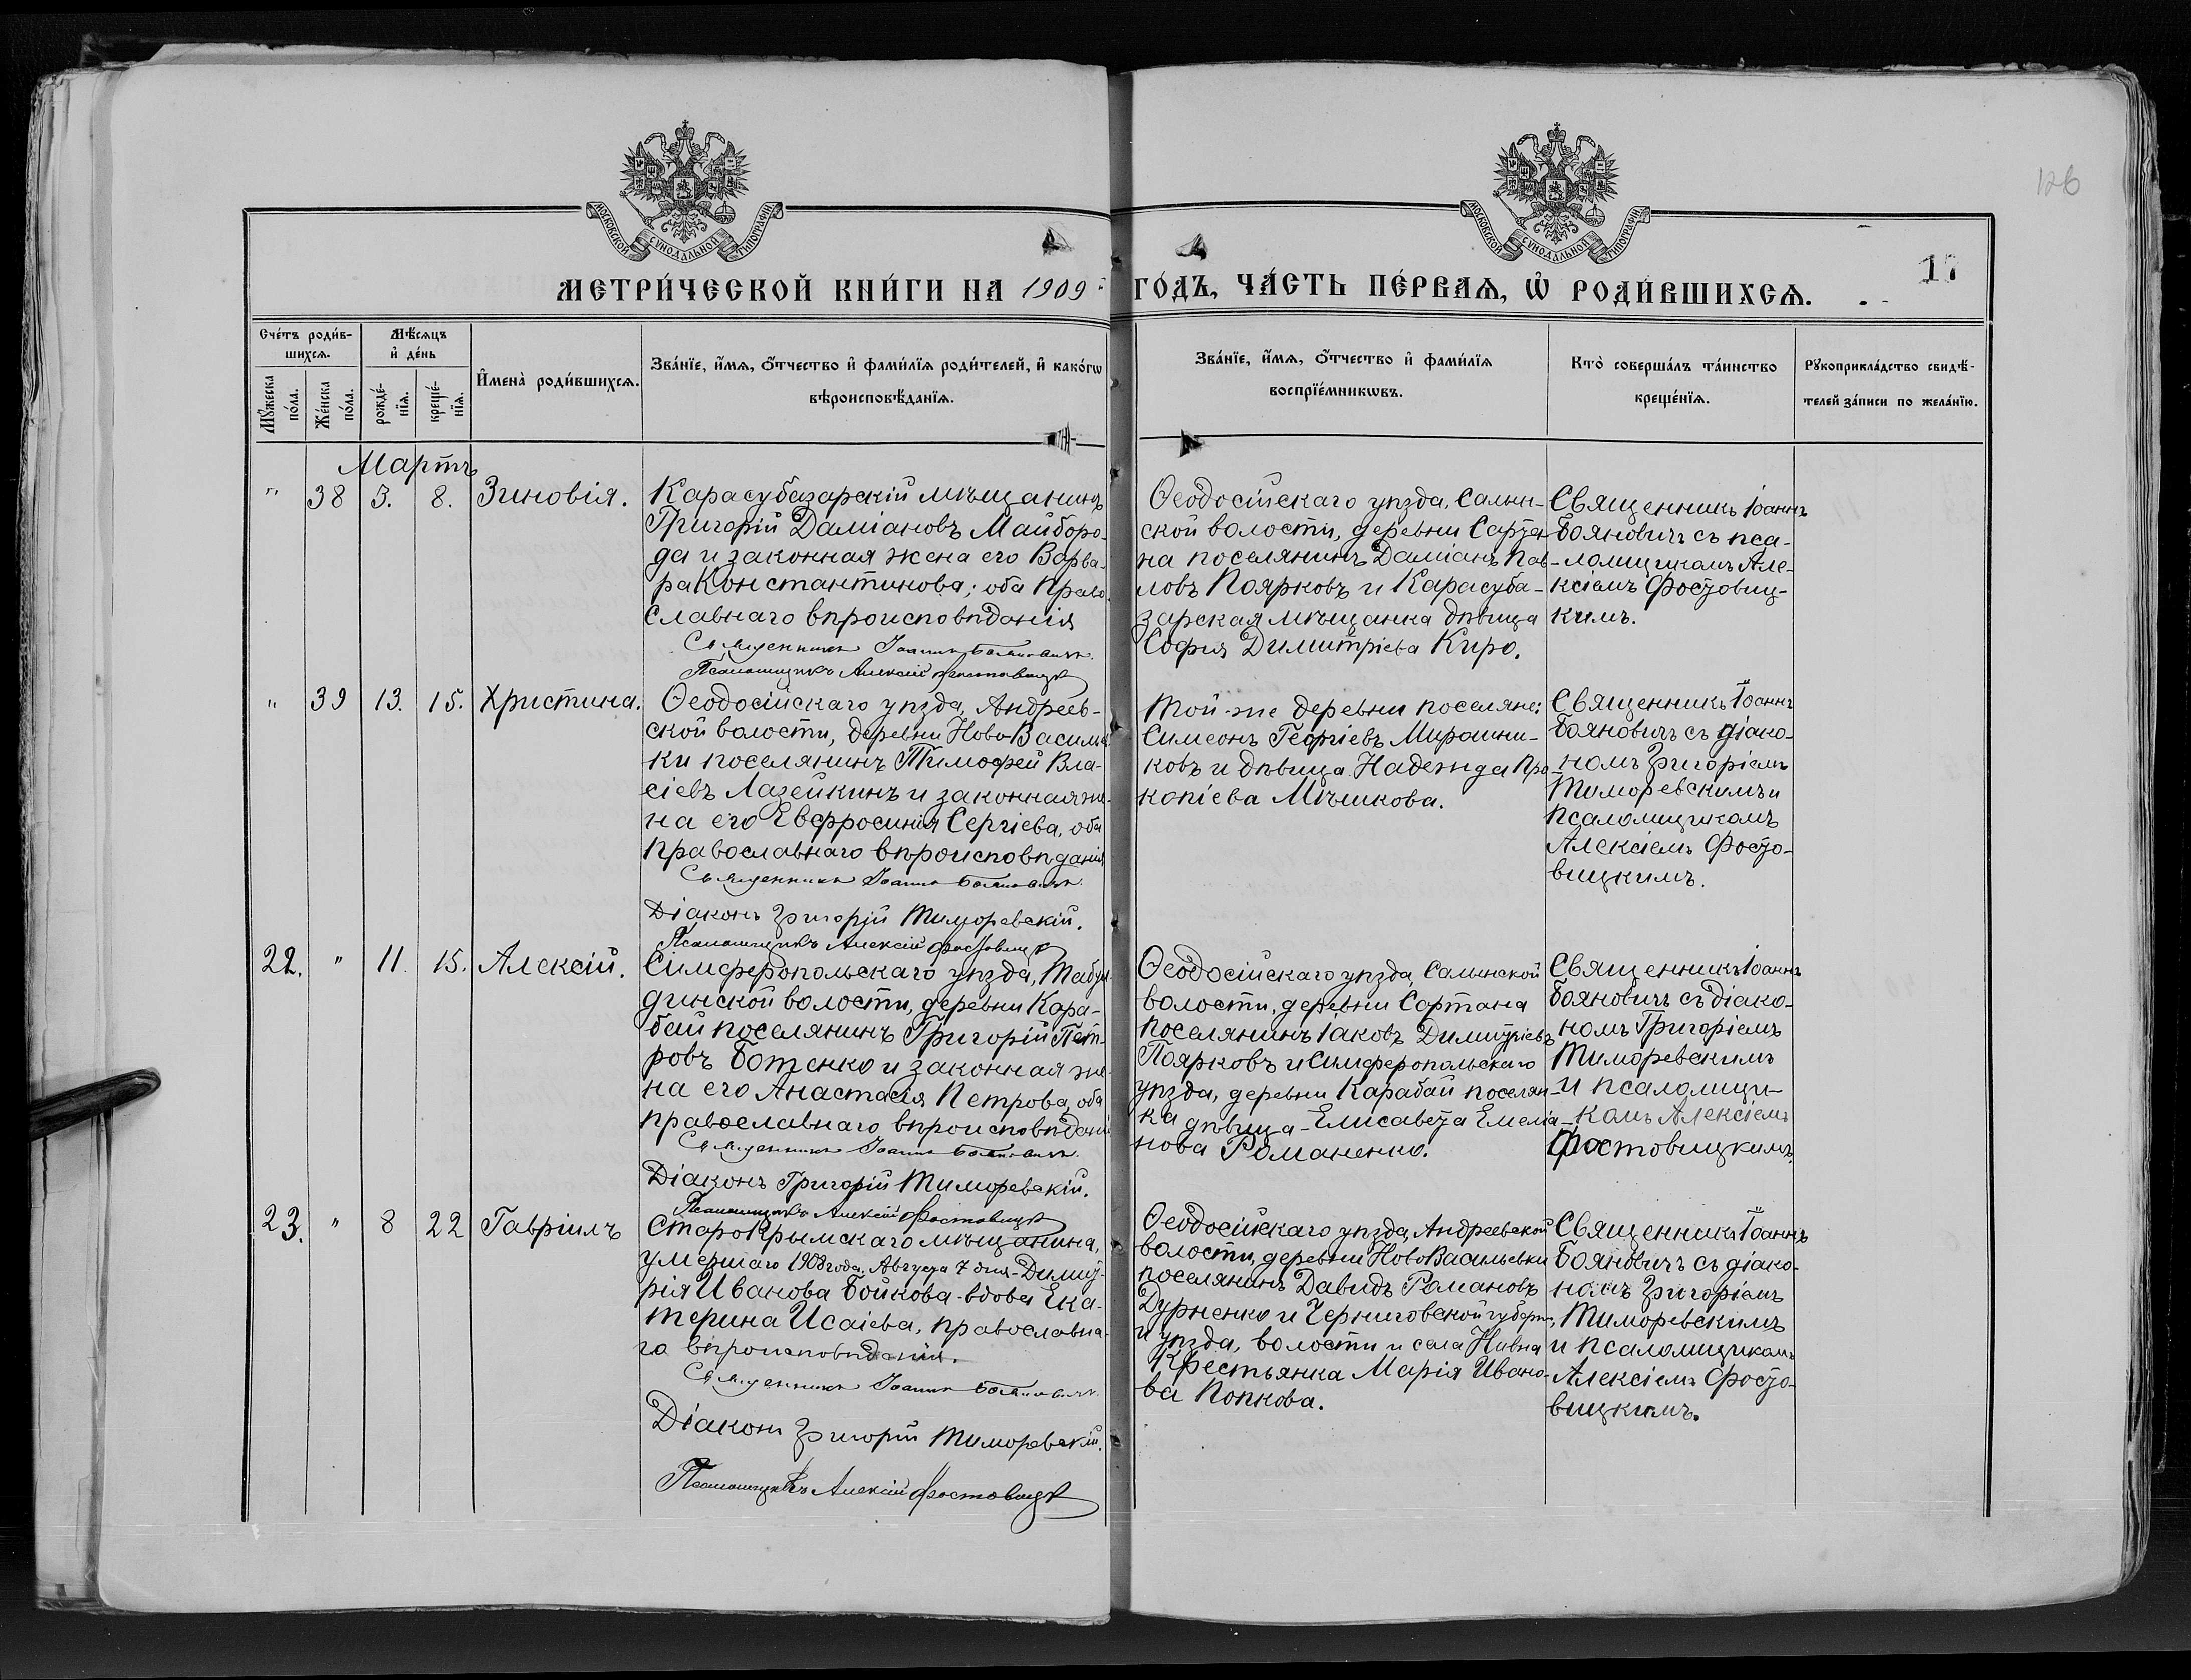 126
МОСКОВСКОЙ СУНОДАЛЬНОЙ ТИПОГРАФІИ
МОСКОВСКОЙ СУНОДАЛЬНОЙ ТИПОГРАФІИ
17
МЕТРИ́ЧЕСКОЙ КНИ́ГИ НА 1909 ГО́ДЪ, ЧА́СТЬ ПЕ́РВАѦ, Ѡ҆ РОДИ́ВШИХСѦ.
Сче́тъ роди́в-
шихсѧ.
Мѣ́сѧцъ
и҆ де́нь
Мꙋ́жеска
по́ла.
Же́нска
по́ла.
рожде́-
нїѧ.
креще́-
нїѧ.
И҆мена̀ роди́вшихсѧ.
Зва́нїе, и҆́мѧ, ѻ҆́тчество и҆ фами́лїѧ роди́телей, и҆ како́гѡ
вѣроисповѣ́данїѧ.
Зва́нїе, и҆́мѧ, ѻ҆́тчество и҆ фами́лїѧ
воспрїе́мникѡвъ.
Кто̀ соверша́лъ та́инство
креще́нїѧ.
Рꙋкоприкла́дство свидѣ́-
телей за́писи по жела́нїю.
Мартъ
" 38 3. 8. Зиновія.
Карасубазарскій мѣщанинъ
Григорій Даміановъ Майборо-
да и законная жена его Варва-
ра Константинова; оба право
славнаго вѣроисповѣданія
Священникъ Іоаннъ Бояновичъ.
Псаломщикъ Алексій Фостовицкій
Ѳеодосійскаго уѣзда, Салын-
ской волости, деревни Сарта-
на поселянинъ Даміанъ Пав-
ловъ Поярковъ и Карасуба-
зарская мѣщанка дѣвица
Софія Димитріева Киро.
Священникъ Іоаннъ
Бояновичъ съ пса-
ломщикомъ Але-
ксіемъ Фостовиц-
кимъ.
" 39 13. 15. Христина.
Ѳеодосійскаго уѣзда, Андреев-
ской волости, деревни Ново Василье
ки поселянинъ Тимофей Вла-
сіевъ Лазейкинъ и законная же-
на его Евфросинія Сергіева, оба
православнаго вѣроисповѣданія
Священникъ Іоаннъ Бояновичъ.
Діаконъ Григорій Тиморевскій.
Псаломщикъ Алексій Фостовицкій
Той-же деревни поселяне:
Симеонъ Георгіевъ Мирошни-
ковъ и дѣвица Надежда Про-
копіева Мѣшкова.
Священникъ Іоаннъ
Бояновичъ съ діако-
номъ Григоріемъ
Тиморевскимъ и
псаломщикомъ
Алексіемъ Фосто-
вицкимъ.
22. " 11. 15. Алексій.
Симферопольскаго уѣзда, Табул
динской волости, деревни Кара-
бай поселянинъ Григорій Пет-
ровъ Ботенко и законная же-
на его Анастасія Петрова, оба
православнаго вѣроисповѣданія
Священникъ Іоаннъ Бояновичъ.
Діаконъ Григорій Тиморевскій.
Псаломщикъ Алексій Фостовицкій
Ѳеодосійскаго уѣзда, Салынской
волости, деревни Сартана
поселянинъ Іаковъ Димитріевъ
Поярковъ и Симферопольскаго
уѣзда, деревни Карабай поселян-
ка дѣвица - Елисавета Емеліа-
нова Романенко.
Священникъ Іоаннъ
Бояновичъ съ діако-
номъ Григоріемъ
Тиморевскимъ
и псаломщи-
комъ Алексіемъ
Фостовицкимъ.
23. " 8 22 Гавріилъ
Старокрымскаго мѣщанина,
умершаго 1908 года, Августа 7 дня - Димит-
рія Иванова Бойкова - вдова Ека-
терина Исаіева, православна-
го вѣроисповѣданія.
Священникъ Іоаннъ Бояновичъ.
Діаконъ Григорій Тиморевскій.
Псаломщикъ Алексій Фостовицкій
Ѳеодосійскаго уѣзда, Андреевской
волости, деревни НовоВасильевки
поселянинъ Давидъ Романовъ
Дурненко и Черниговской губерн.
и уѣзда, волости и села Нивна
крестьянка Марія Ивано-
ва Попкова.
Священникъ Іоаннъ
Бояновичъ съ діако-
номъ Григоріемъ
Тиморевскимъ
и псаломщикомъ
Алексіемъ Фосто-
вицкимъ.